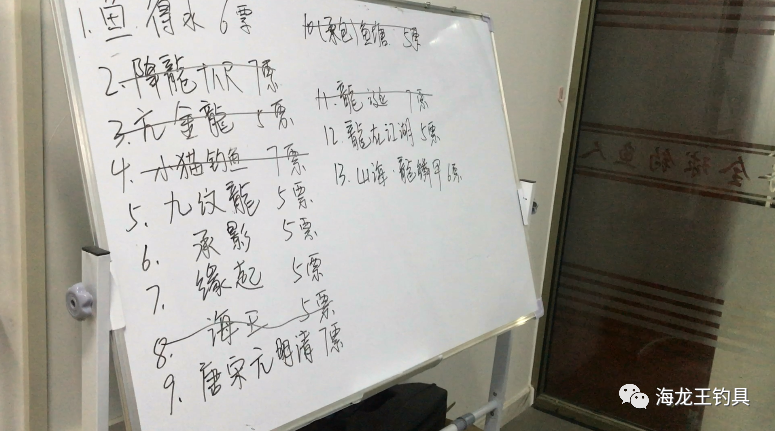 1. 鱼得水 6票
2. 降龍 7票
3. 元金龍 5票
4. 小猫钓鱼 7票
5. 九纹龍 5票
6. 承影 5票
7. 缘起 5票
8. 海王 5票
9. 唐宋元明清 7票
10.(承包)鱼塘 5票
11. 龍 7票
12. 龍在江湖 5票
13. 山海龍鳞甲 6票
全球钓鱼人
海龙王钓具